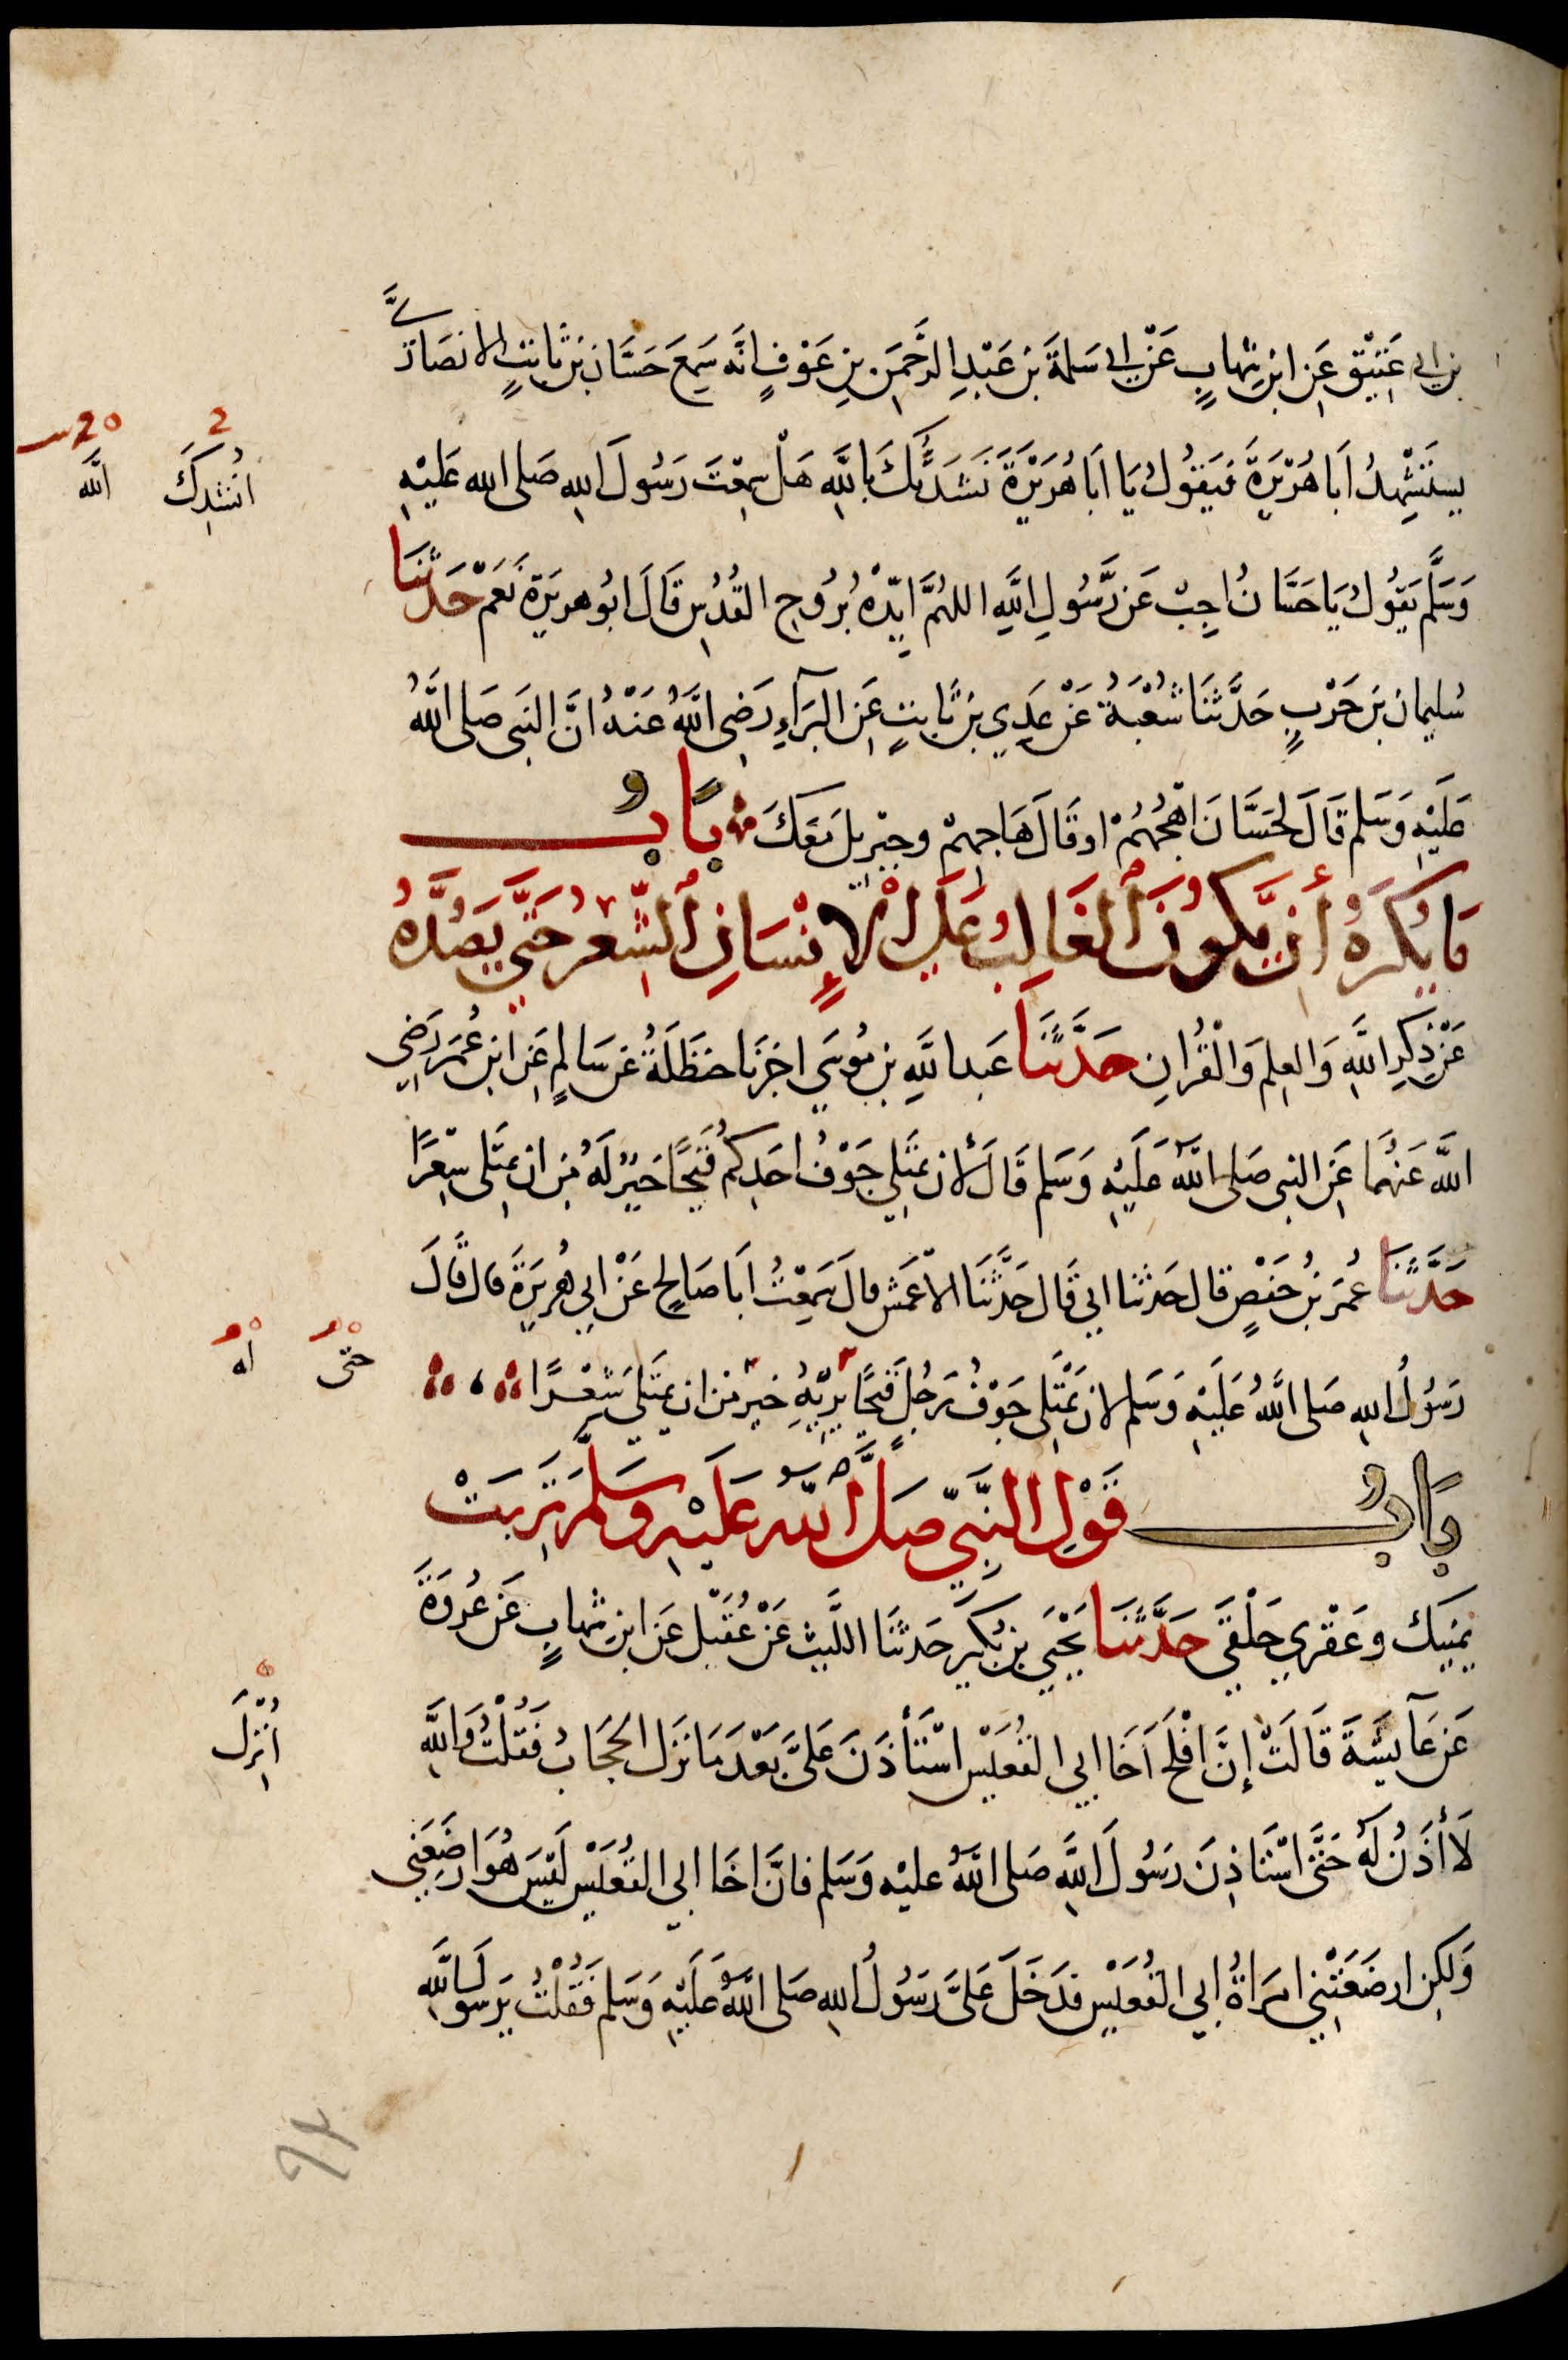 بن ابى عَتِيْقٍ عَنِ ابْنِ شِهابٍ عَنْ ابى سَلمَةَ بْنِ عَبْدِ الرَّحْمَنِ بنِ عَوْفٍ انَّه سَمِعَ حَسَّانَ بْنَ ثَابِتٍ الانصَارىَّ
يستَشْهِدُ اَبَا هُرَيْرَةَ فيَقُولُ يَا اَبَا هُرَيْرَةَ نَشَدْتُكَ بِاللَّهِ هَلْ سَمِعْتَ رَسُولَ اللهِ صَلى الله عَلَيْهِ
وَسَلَّم يَقُولُ يَا حَسَّانُ اَجِبْ عَن رَّسُولِ اللَّهِ اللهُمَّ ايِّدْهُ بُروُحِ القُدُسِ قَالَ ابُو هريرَة نَعَمْ حَدَّثَنَا
سُليمان بنَ حَرْبٍ حَدَّثَنَا شُعْبَةُ عَنْ عَدِي بنِ ثَابِتٍ عَنِ البَرَآءِ رَضِى اللَّهُ عَنْهُ انَّ النبَى صَلى اللَّهُ
عَلَيْهِ وَسَلم قَالَ لحَسَّانَ اهْجُهُمْ او قَالَ هَاجِهِمْ وجبْرِيلَ مَعَكَ بَابٌ
مَا يُكْرَهُ أَن يَّكوُنَ الغَالِبُ عَلَى الْإِنْسَانِ الشِّعْرُ حَتَّي يَصُدَّهُ
عَنْ ذِكرِ اللَّهِ وَالعِلمِ وَالْقُرْانِ حَدَّثَنَا عَبد اللَّهِ بن مُوسَي اخبرَنَا حنظَلَةُ عَن سَالمٍ عَنِ ابن عُمَرَ رَضِى
اللَّه عَنهُمَا عَنِ النبى صَلى اللَّهُ عَلَيْهِ وَسَلم قَالَ لَأن يمتَلِي جَوْفُ احَدِكمُ قَيْحًا خيْرٌ لَهُ مِن ان يمتَلِى شِعْرًا
حَدَّثَنَا عُمَرُ بنُ حَفْصٍ قال حَدثنا ابى قَال حَدَّثَنَا الاعْمَش قال سَمِعْتُ اَبَا صَالحٍ عَنْ ابى هُرَيرَةَ قال قَالَ
رَسُولُ اللهِ صَلى اللَّهُ عَلَيْهِ وَسَلم لان يَمْتَلِى جَوْفُ رَجُلٍ قَيحًا يَرِيْهِ خيرٌ من ان يمتَلى شِعْرًا
بَابُ قَوْلِ النَّبِيِّ صَلَّى اللهُ عَلَيْهِ وَسَلَّمَ تَرِبَتْ
يَمِيْنِك وعَقْرىِ حَلْقَى حَدَّثَنَا يَحْيَي بن بُكَيرٍ حَدثَنَا اللَّيث عَنْ عُقَيْل عَن ابنِ شِهابٍ عَن عُروَةَ
عَن عَآئِشَةَ قَالَتْ إِنَّ افْلَحَ اَخَا ابى القُعَيْس اسْتَأذَنَ عَلَىَّ بَعْدَ مَا نزَل الحجَابُ فَقُلْتُ وَاللَّهِ
لَا أَذَنُ لَهُ حَتَّى اسْتَاذِنَ رَسُولَ اللَّهِ صَلى اللَّهُ عليْه وَسَلم فانَّ اخَا ابى القُعَيْسِ لَيْسَ هُوَ ارضَعَنِى
وَلَكِن ارضَعَتْنِي امرَاةُ ابى القُعَيْس فدَخَلَ عَلىَّ رَسُولُ اللهِ صَلى اللَّهُ عَلَيْهِ وَسَلم فَقُلْتُ يرَسُولَ اللَّهِ
اُنشِدُكَ
اللَّه
حتّى
اه
اُنزِلَ